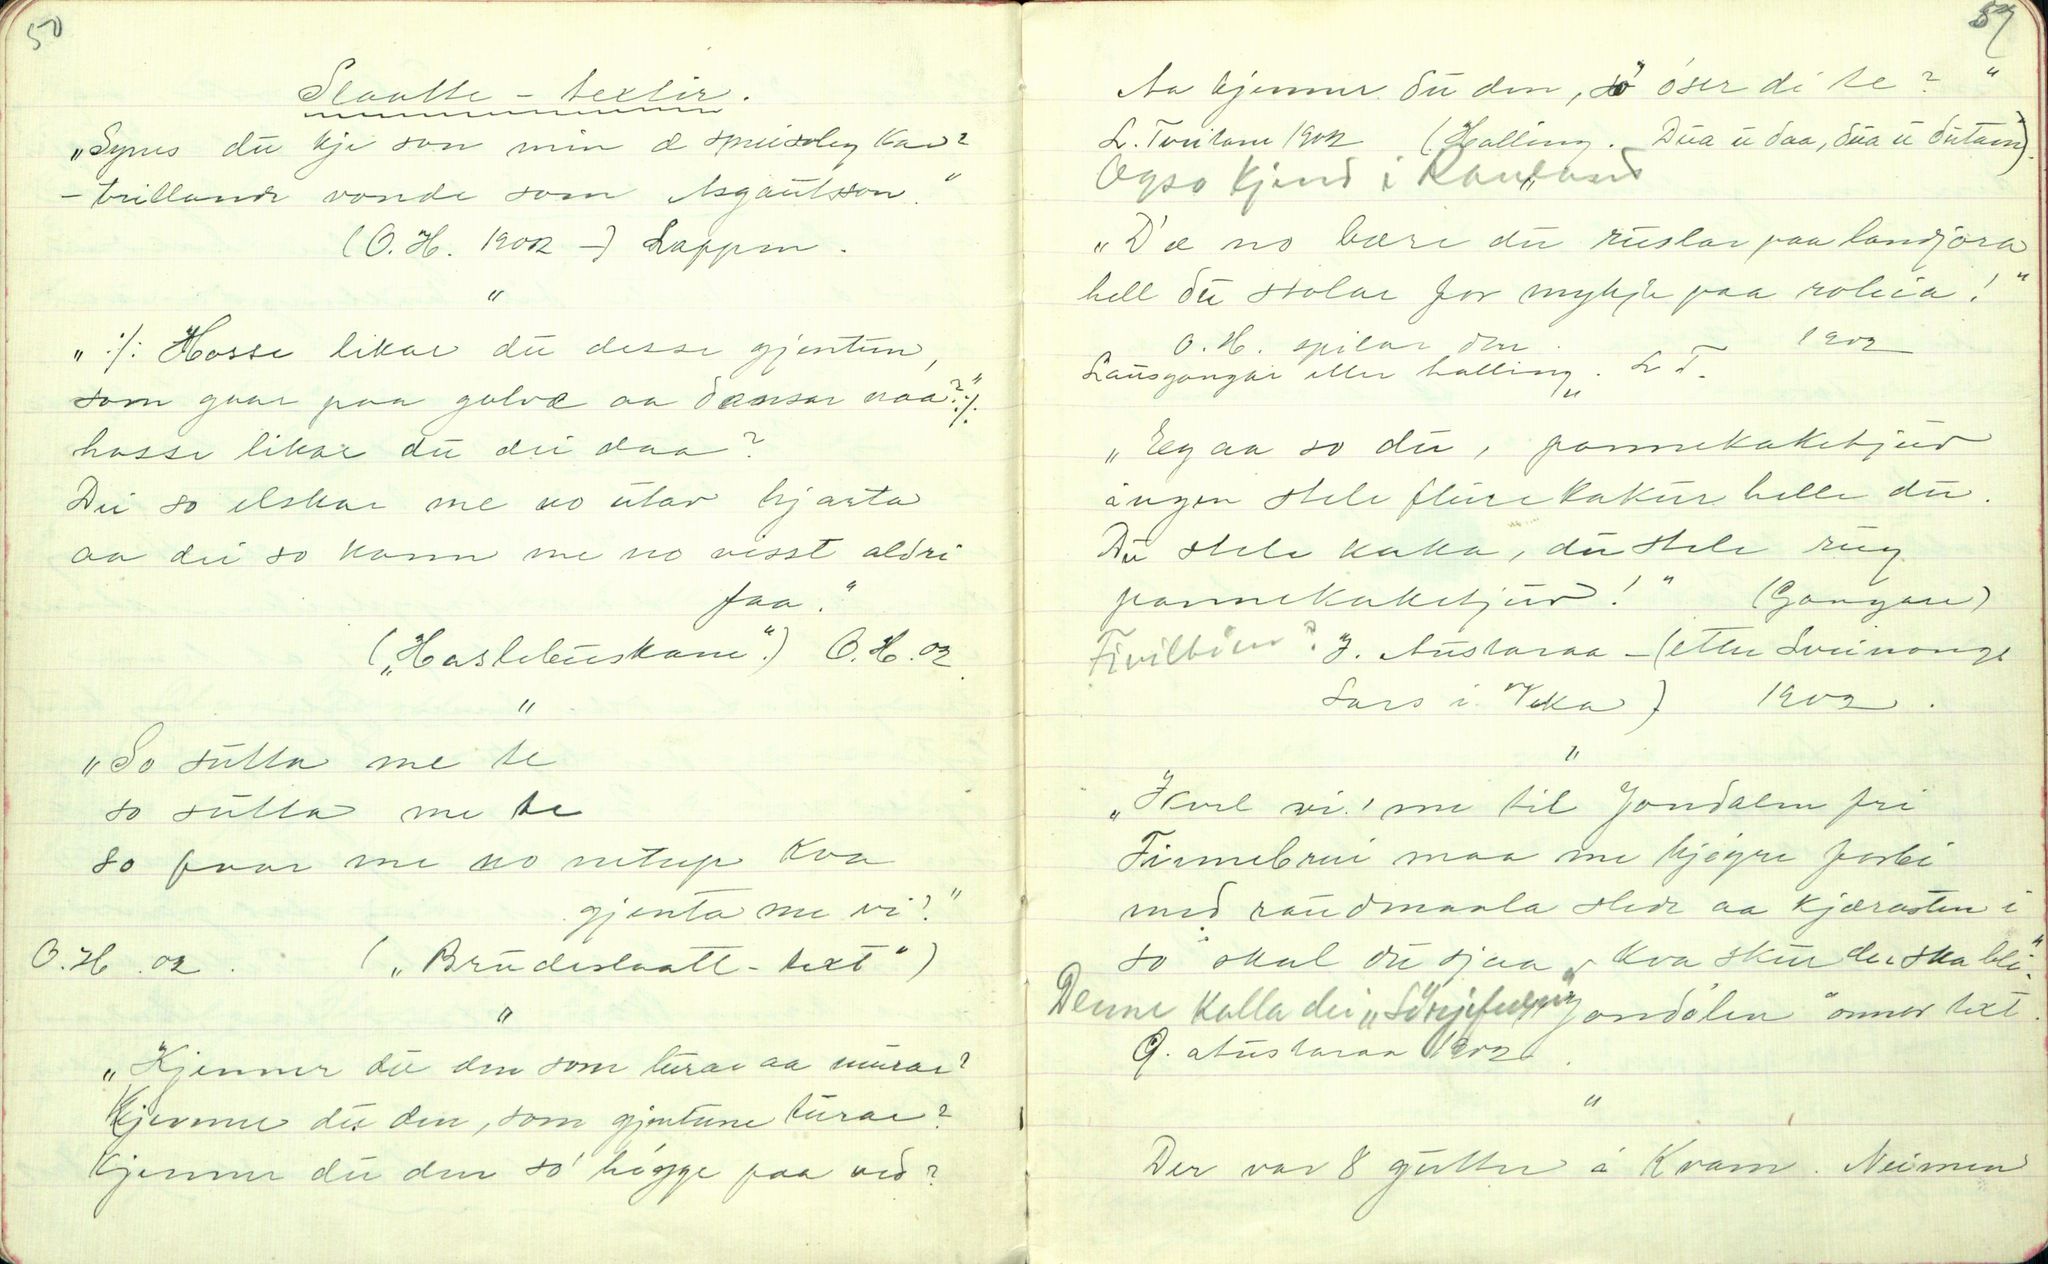 50
Slaatte-textir.
„Synes du kje son min æ speisoleg kar?
– trillande vonde som Asgautsson."
(O. H. 1902 –) Lappen.
"
„ :/: Hosse likar du desse gjentun,
som gaar paa golvæ aa dansar naa?" :/:
hosse likar du dei daa?
Dei so elskar me no utav hjarta
aa dei so kann me no visst aldri
faa."
(„Haslebuskane".) O. H. 02.
"
„So sutta me te
so sutta me te
so faar me no netup kva
gjenta me vi'."
O. H. 02. („Brudeslaatt-text")
"
„Kjenner du den som turar aa murar?
Kjenner du den, som gjentune lurar?
Kjenner du den so' høgge paa ved?
57
Aa kjenner du den, so' óser di te?"
L. Tveitane 1902 (Halling. Dua u daa, dua u dutam).
Ogso kjend i Rauland
"
„D'æ no bære du ruslar paa landjora
hell du stolar for mykje paa roleia!"
O. H. spilar den. 1902
Lausgangar eller halling. L. T.
"
„Eg aa so du, pannekaketjuv
ingen stele fleire kakur helle du.
Du stele kaka, du stele rug
pannekaketjuv!" (Gangar)
J. Austaraa – (etter Sveinange
Lars i Veka) 1902.
"
„Kvel vi' me til Jondalen fri
Finnebrui maa me kjøyre forbi
med raudmaala slede aa kjærasten i
so skal du sjaa, kva skur de ska bli."
Denne kalla dei „Sørgjefulen" Jondølen annar text.
G. Austaraa 1902.
"
Der var 8 gutter i Kvam. Neimen